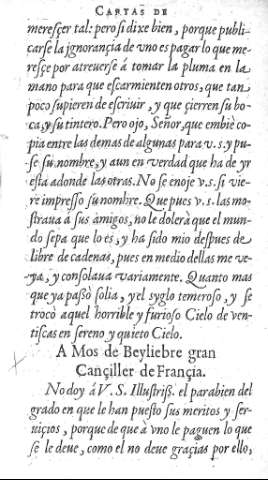 CARTAS DE
meresçer tal: pero si dixe bien, porque publi-
carse la jgnorançia de vno es pagar lo que me-
resçe por atreuerse á tomar la pluma en la
mano para que escarmienten otros, que tan
poco supieren de escriuir, y que çierren su bo-
ca, y su tintero. Pero ojo, Señor, que embiè co-
pia entre las demas de algunas para v.s. y pu-
se su nombre, y aun en verdad que ha de yr
esta adonde las otras. No se enoje v.s. si vie-
re impresso su nombre. Que pues v.s. las mo-
straua à sus amigos, no le dolerà que el mun-
do sepa que lo es, y ha sido mio despues de
libre de cadenas, pues en medio dellas me ve-
ya, y consolaua variamente. Quanto mas
que ya passò solia, y el syglo temeroso, y se
trocò aquel horrible y furioso Cielo de ven-
tiscas en sereno y quieto Cielo.
A Mos de Beyliebre gran
Cançiller de Françia.
No doy á V. S. Illustriss. el parabien del
grado en que le han puesto sus meritos y ser-
uiçios, porque de que à vno le paguen lo que
se le deue, como el no deue graçias por ello,